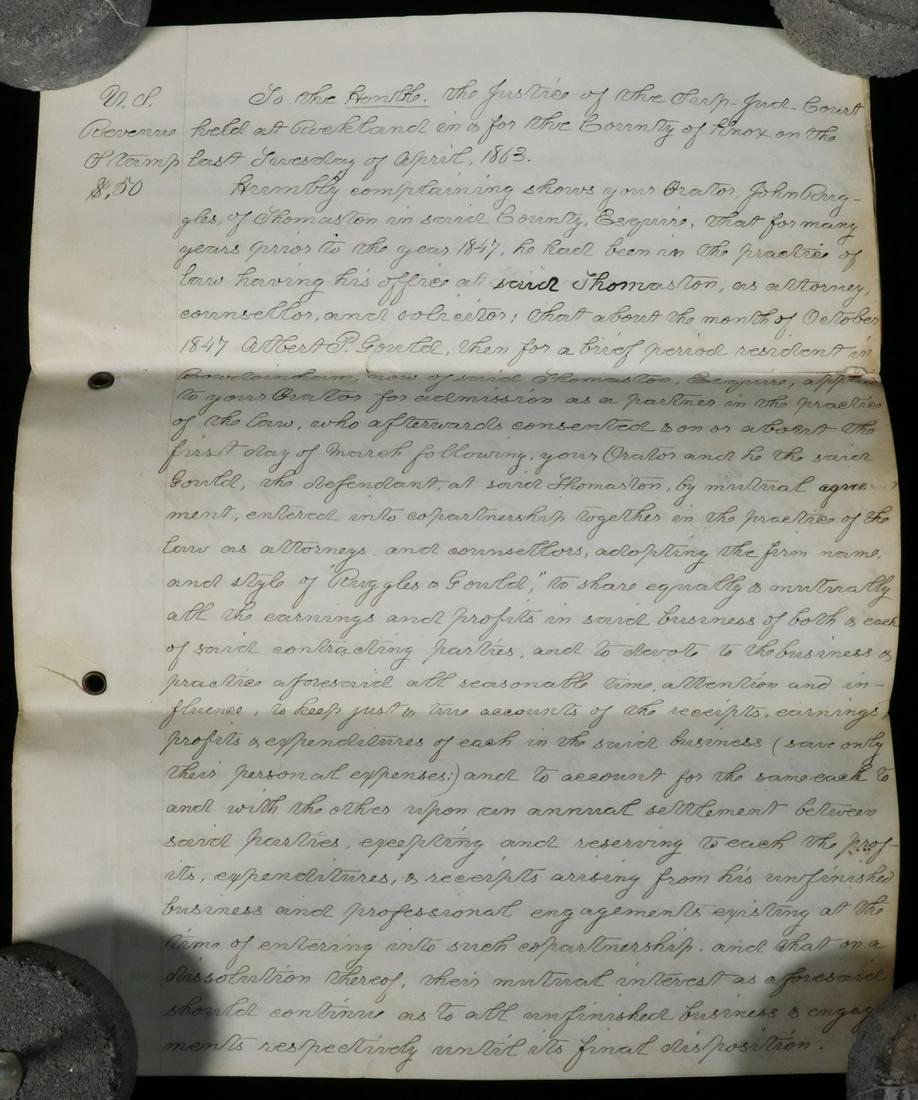 U.S.
Revenue
Stamp
$,50
To the Honble. the Justice of the Sup- Jud- Court
held at Rockland in & for the County of Knox on the
last Tuesday of April, 1863.
Humbly complaining shows your Orator, John Rug-
gles, of Thomaston in said County, Esquire, that for many
years prior to the year 1847, he had been in the practice of
law having his office at said Thomaston, as attorney,
counsellor, and solicitor; that about the month of October
1847 Albert P. Gould, then for a brief period resident in
Bowdoinham, now of said Thomaston, Esquire,
to your Orator for admission as a partner in the practice
of the law, who afterwards consented & on or about the
first day of March following, your Orator and he the said
Gould, the defendant, at said Thomaston, by mutual agree-
ment, entered into copartnership together in the practice of the
law as attorneys and counsellors, adopting the firm name,
and style of "Ruggles & Gould," to share equally & mutually
all the earnings and profits in said business of both & each
of said contracting parties, and to devote to the business &
practice aforesaid all reasonable time, attention and in-
fluence, to keep just & true accounts of the receipts, earnings,
profits & expenditures of each in the said business (save only
their personal expenses;) and to account for the same each to
and with the other upon an annual settlement between
said parties, excepting and reserving to each the prof-
its, expenditures, & receipts arising from his unfinished
business and professional engagements existing at the
time of entering into such copartnership. and that on a
dissolution thereof, their mutual interest as aforesaid
should continue as to all unfinished business & engage
ments respectively until its final disposition.